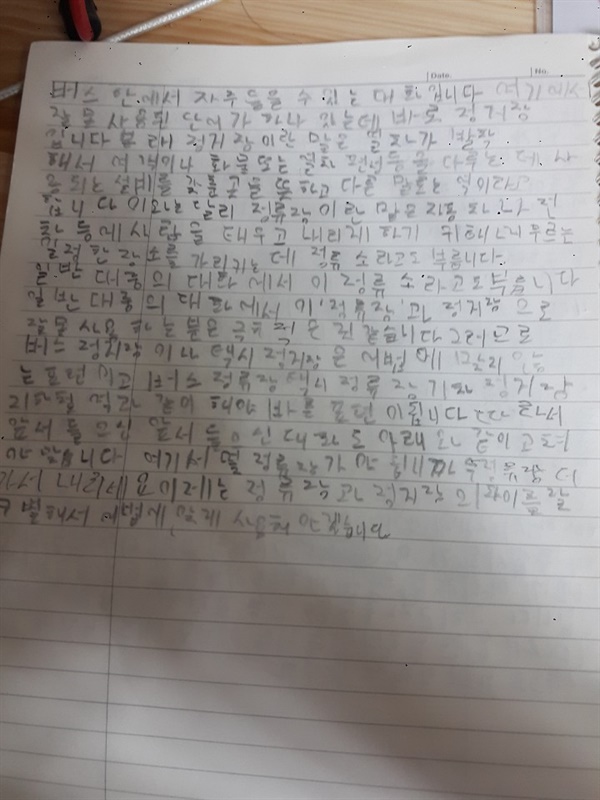 Date. No.
버스 안에서 자주 들을 수 있는 대화입니다 여기에서
잘못 사용된 단어가 하나 있는데 바로 정거장
입니다 본래 정거장이란 말은 열차가 발착
해서 여객이나 화물 또는 열차 편성 등을 다루는 데 사
용되는 설비를 갖춘 곳을 뜻하고 다른 말로는 역이라고
합니다 이와는 달리 정류장이란 말은 자동차나 전
차 등에 사람을 태우고 내리게 하기 위해 머무르는
일정한 장소를 가리키는 데 정류소라고도 부릅니다
일반 대중의 대화에서 이 정류소라고도 부릅니다
일반 대중의 대화에서 이 정류장과 정거장으로
잘못 사용하는 분은 극히 적은 것 같습니다 그러므로
버스 정거장이나 택시 정거장은 어법에 맞지 않
는 표현이고 버스 정류장 택시 정류장 기차 정거장
지하철 역과 같이 해야 바른 표현이 됩니다 따라서
앞서 들으신 앞서 들으신 대화도 아래와 같이 고쳐
야 맞습니다 여기서 몇 정류장 가야 합니까 두 정류장 더
가서 내리세요 이제는 정류장과 정거장의 차이를 잘
구별해서 어법에 맞게 사용해야겠습니다